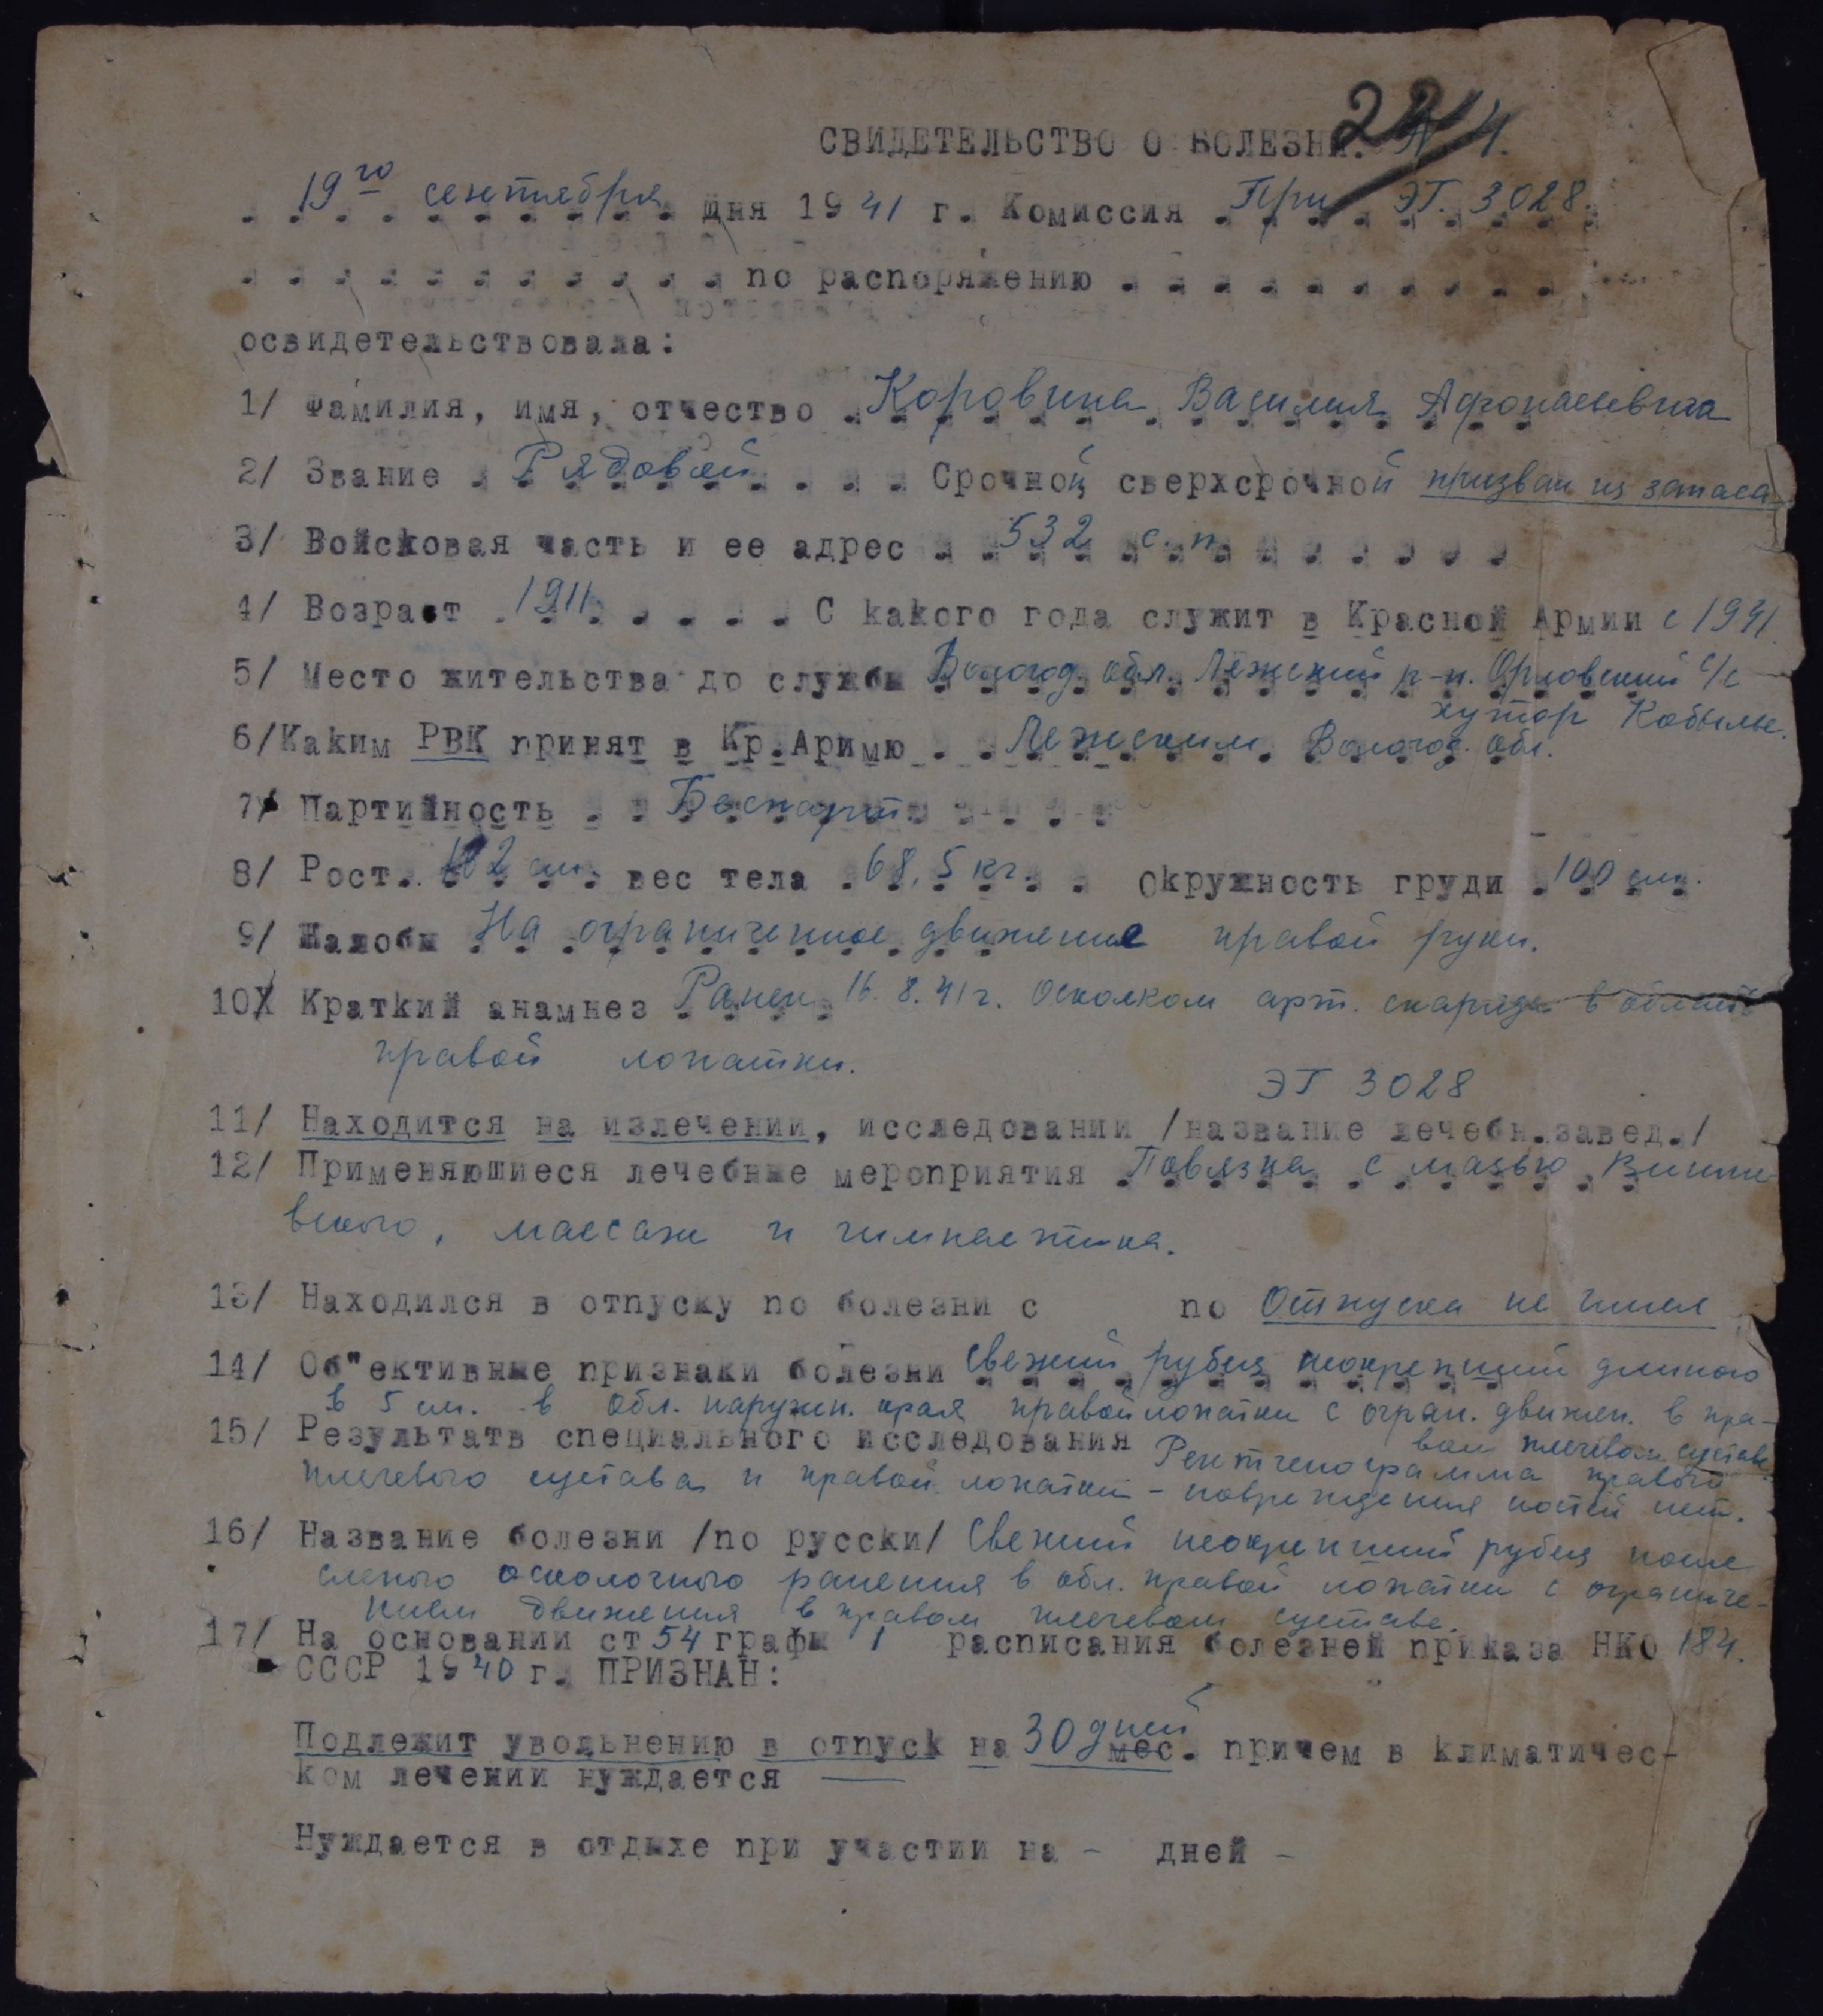 СВИДЕТЕЛЬСТВО О БОЛЕЗНИ. N 4.
22
19го сентября дня 1941 г. Комиссия При ЭГ. 3028.
по распоряжению
освидетельствовала:
1/ Фамилия, имя, отчество Коровина Василия Афонасьевича
2/ Звание Рядовой Срочной сверхсрочной призван из запаса
3/ Войсковая часть и ее адрес 532 с. п.
4/ Возраст 1911 С какого года служит в Красной Армии с 1941.
5/ Место жительства до службы Вологод. обл. Лежский р-н. Орловский с/с
хутор Кобылье.
6/ Каким РВК принят в Кр.Аримю Лежским Вологод. обл.
7/ Партийность Беспарт.
8/ Рост см. вес тела 68,5 кг. окружность груди 100 см.
9/ Жалобы На ограниченное движение правой руки.
10/ Краткий анамнез Ранен 16.8.41г. осколком арт. снаряда в область
правой лопатки.
ЭГ 3028
11/ Находится на излечении, исследовании /название лечебн.завед./
12/ Применяюшиеся лечебные мероприятия Повязка с мазью Вишне
вского, массаж и гимнастика.
13/ Находился в отпуску по болезни с по Отпуска не имел
14/ Об"ективные признаки болезни Свежий рубец неокрепший длиною
в 5 см. в обл. наружн. края правой лопатки с огран. движен. в пра-
вом плечевом суставе.
15/ Результатв специального исследования Рентгенограмма правого
плечевого сустава и правой лопатки - повреждения костей нет.
16/ Название болезни /по русски/ Свежий неокрепший рубец после
слепого осколочного ранения в обл. правой лопатки с ограниче-
нием движения в правом плечевом суставе.
17/ На основании ст 54 графы 1 расписания болезней приказа НКО 184.
СССР 1940 г. ПРИЗНАН:
Подлежит увольнению в отпуск на 30 дней мес. причем в климатичес-
ком лечении нуждается —
Нуждается в отдыхе при участии на - дней -